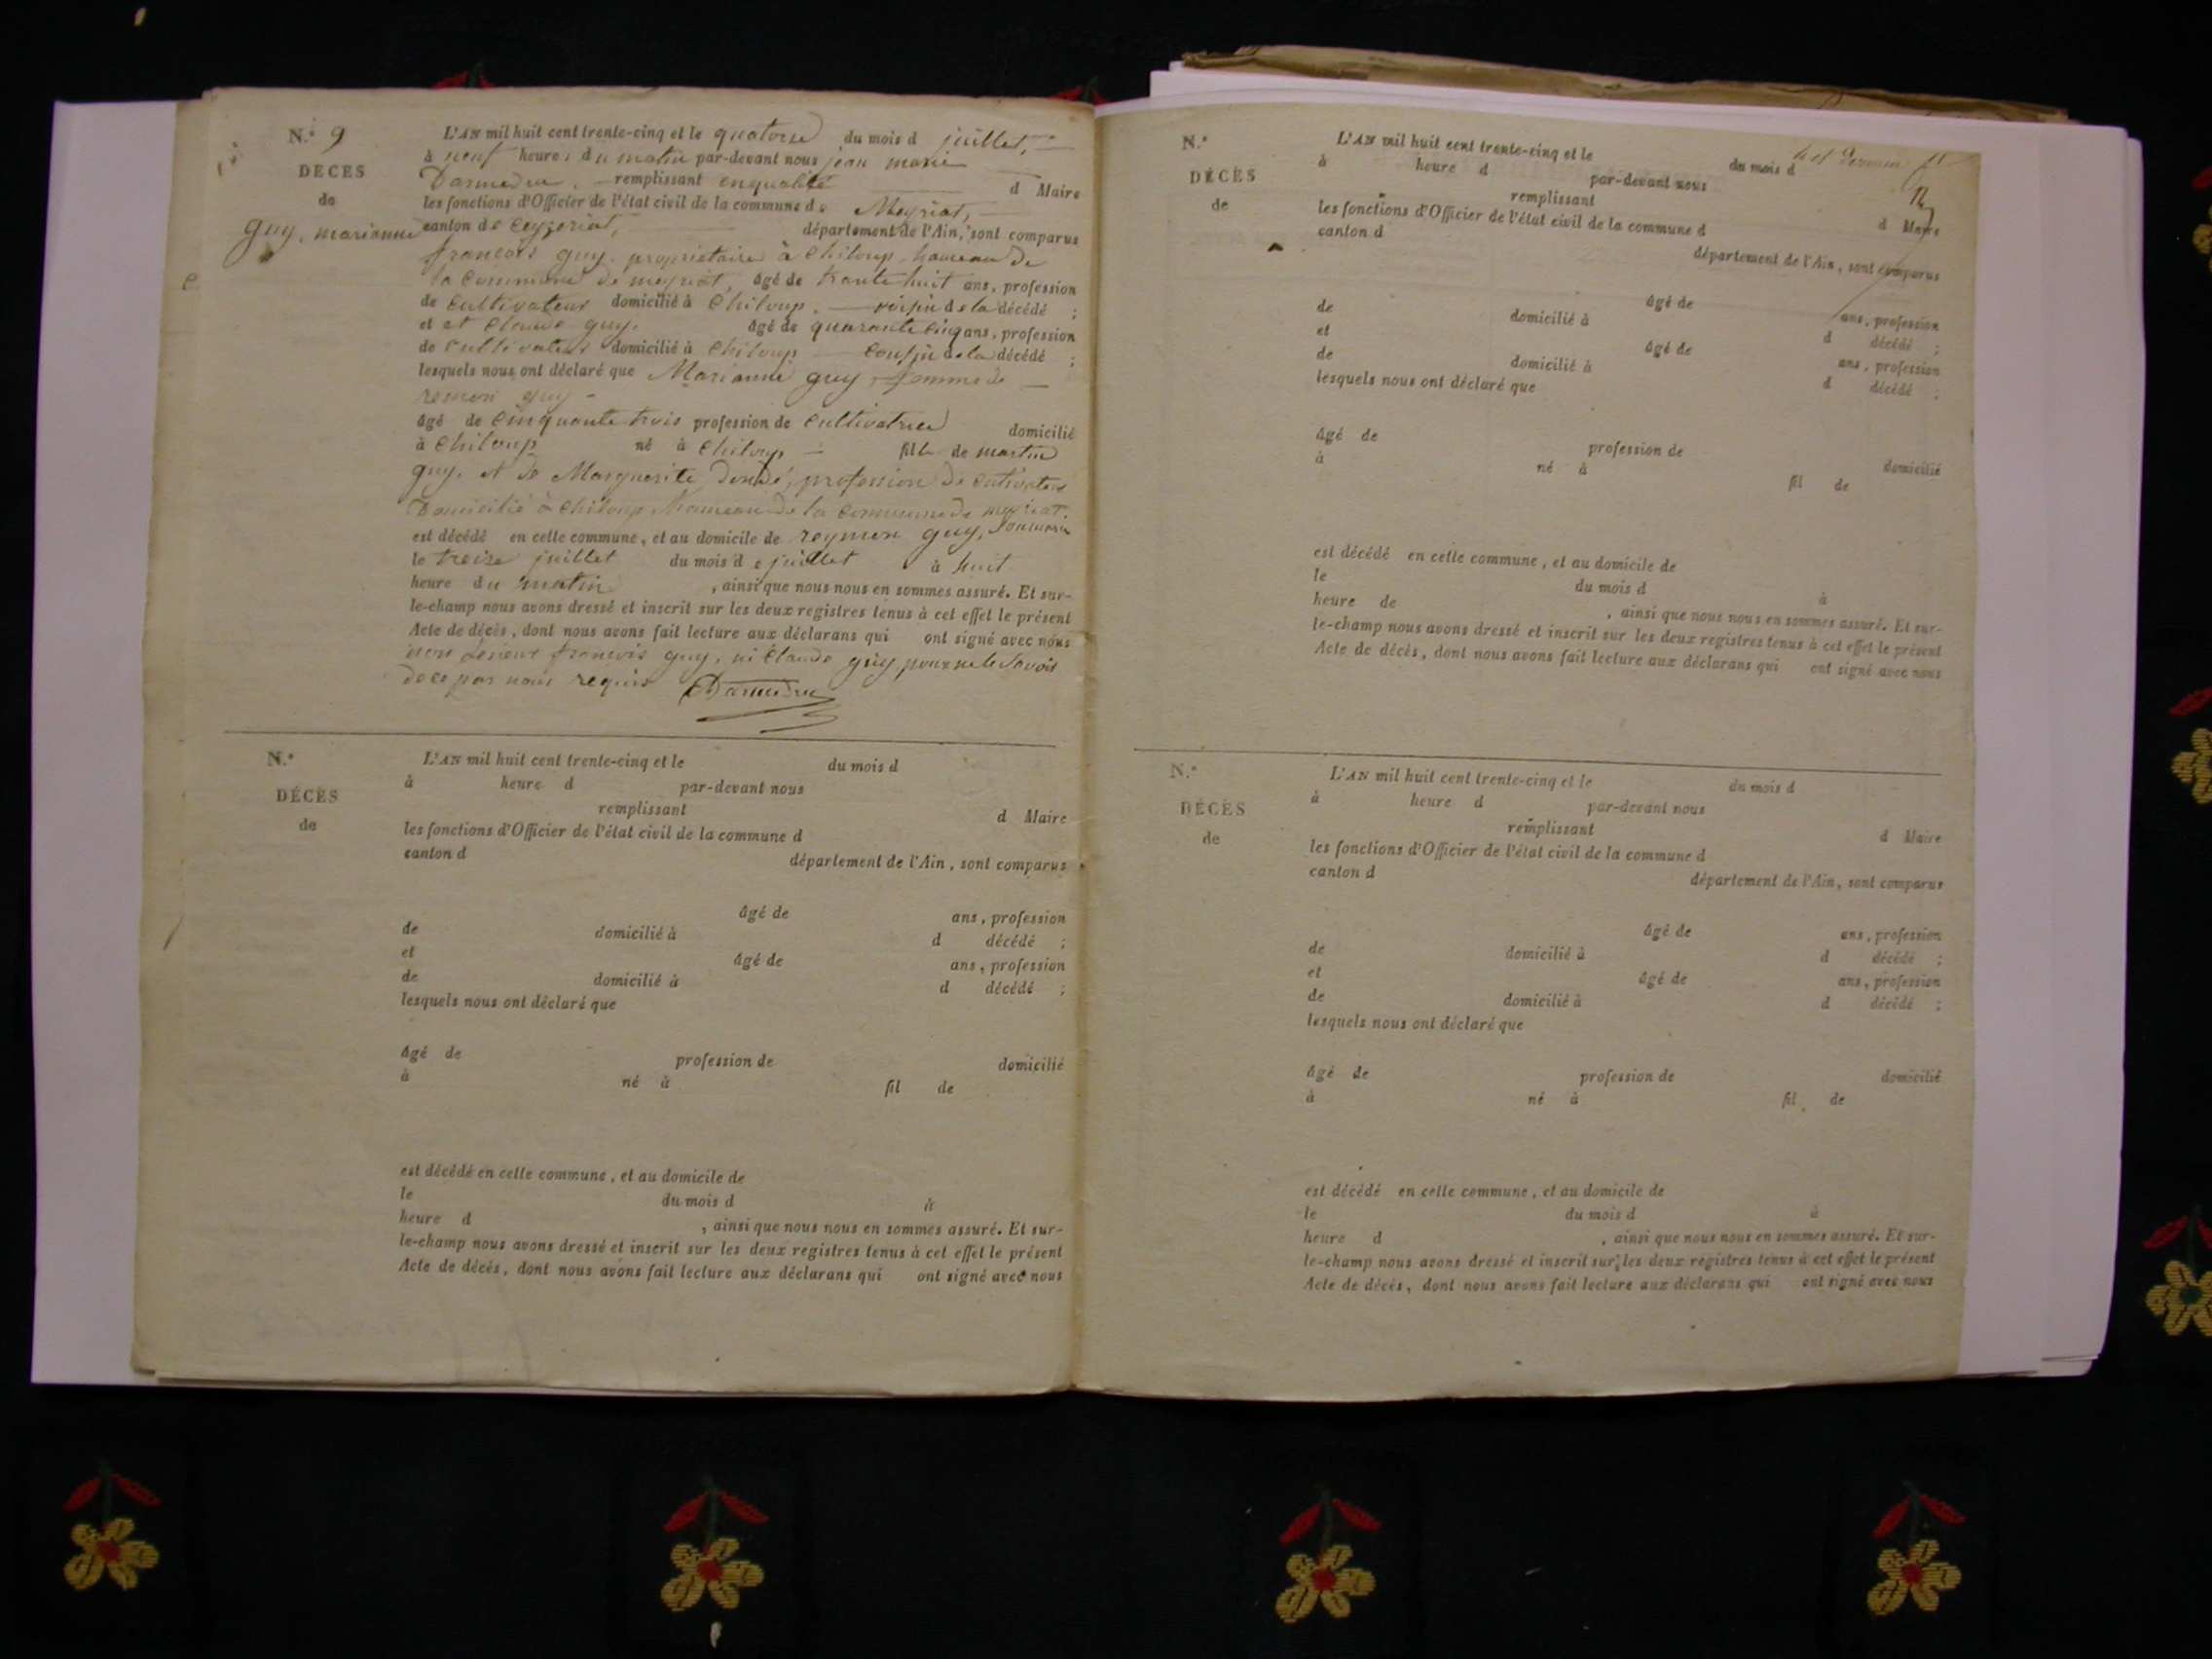 N.o 9
DÉCÈS
de
guy, marianne
L'AN mil huit cent trente-cinq et le quatorze du mois d juillet,
à neuf heures du matin par-devant nous jean marie
Darmedru, remplissant en qualité d Maire
les fonctions d'Officier de l'état civil de la commune de Meyriat,
canton de Ceyzeriat, département de l'Ain, sont comparus
francois guy, propriétaire à Chiloup, hameau de
la commune de meyriat, âgé de trante huit ans, profession
de cultivateur domicilié à Chiloup. voisin de la décédé ;
et et Claude guy, âgé de quarante cinq ans, profession
de cultivateur domicilié à Chiloup cousin de la décédé ;
lesquels nous ont déclaré que Marianne guy, femme de
remon guy
âgé de cinquante trois profession de cultivatrice domicilié
à Chiloup né à Chiloup fille de martin
guy, et de Marguerite profession de cultivateur
Domicilié à Chiloup hameau de la commune de meyriat.
est décédé en cette commune, et au domicile de reymon guy, son mari
le treize juillet du mois de juillet à huit
heure du matin , ainsi que nous nous en sommes assuré. Et sur-
le-champ nous avons dressé et inscrit sur les deux registres tenus à cet effet le présent
Acte de décès, dont nous avons fait lecture aux déclarans qui ont signé avec nous
non francois guy, ni Claude guy, pour ne le savoir
de ce par nous requis Darmedru
N.o
DÉCÈS
de
L'AN mil huit cent trente-cinq et le du mois d
à heure d par-devant nous
remplissant d Maire
les fonctions d'Officier de l'état civil de la commune d
canton d département de l'Ain, sont comparus
âgé de ans, profession
de domicilié à d décédé ;
et âgé de ans, profession
de domicilié à d décédé ;
lesquels nous ont déclaré que
âgé de profession de domicilié
à né à fil de
est décédé en cette commune, et au domicile de
le du mois d à
heure d , ainsi que nous nous en sommes assuré. Et sur-
le-champ nous avons dressé et inscrit sur les deux registres tenus à cet effet le présent
Acte de décès, dont nous avons fait lecture aux déclarans qui ont signé avec nous
N.o
DÉCÈS
de
12
L'AN mil huit cent trente-cinq et le du mois d
à heure d par-devant nous
remplissant d Maire
les fonctions d'Officier de l'état civil de la commune d
canton d département de l'Ain, sont comparus
âgé de ans, profession
de domicilié à d décédé ;
et âgé de ans, profession
de domicilié à d décédé ;
lesquels nous ont déclaré que
âgé de profession de domicilié
à né à fil de
est décédé en cette commune, et au domicile de
le du mois d à
heure de , ainsi que nous nous en sommes assuré. Et sur-
le-champ nous avons dressé et inscrit sur les deux registres tenus à cet effet le présent
Acte de décès, dont nous avons fait lecture aux déclarans qui ont signé avec nous
N.o
DÉCÈS
de
L'AN mil huit cent trente-cinq et le du mois d
à heure d par-devant nous
remplissant d Maire
les fonctions d'Officier de l'état civil de la commune d
canton d département de l'Ain, sont comparus
âgé de ans, profession
de domicilié à d décédé ;
et âgé de ans, profession
de domicilié à d décédé ;
lesquels nous ont déclaré que
âgé de profession de domicilié
à né à fil de
est décédé en cette commune, et au domicile de
le du mois d à
heure d , ainsi que nous nous en sommes assuré. Et sur-
le-champ nous avons dressé et inscrit sur les deux registres tenus à cet effet le présent
Acte de décès, dont nous avons fait lecture aux déclarans qui ont signé avec nous